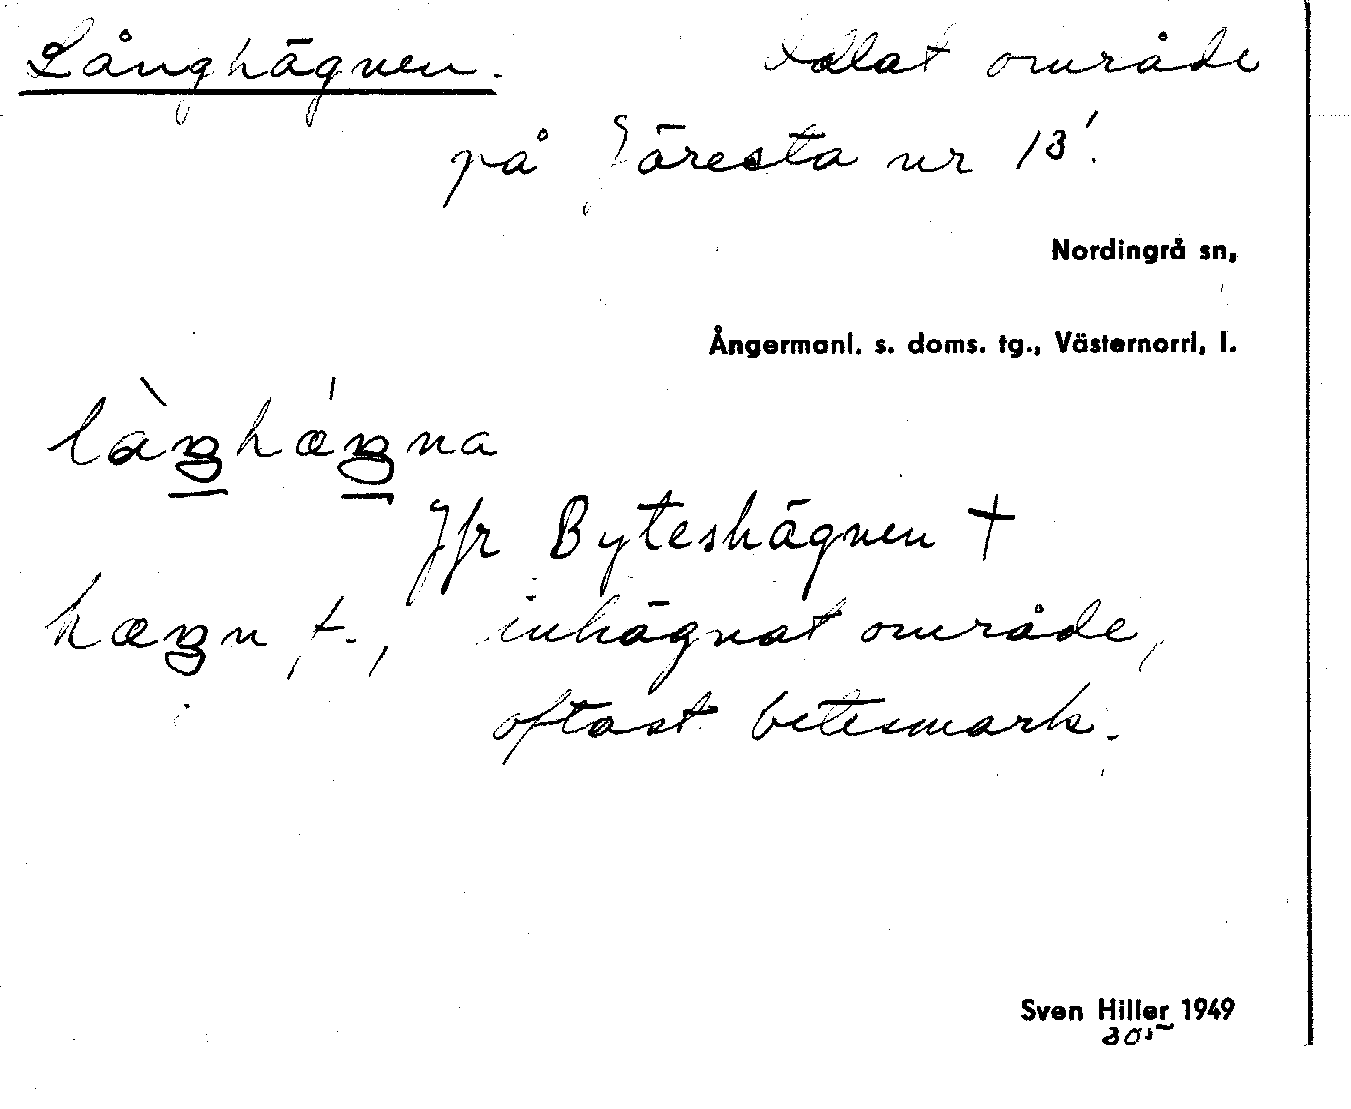 Långhägnen. Odlat område
på Järesta nr 13'.
Nordingrå sn,
Ångermanl. s. doms. tg., Västernorrl, l.
Jfr Byteshägnen +
hæŋn, f., inhägnat område,
oftast betesmark.
Sven Hiller 1949